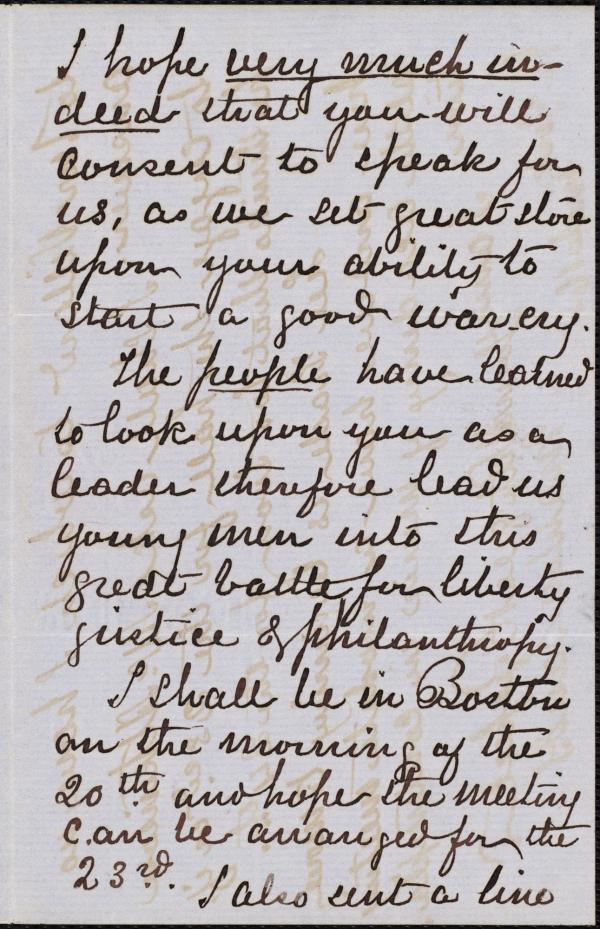 I hope very much in-
deed that you will
consent to speak for
us, as we set great store
upon your ability to
start a good war cry.
The people have learned
to look upon you as a
leader therefore lead us
young men into this
great battle for liberty
justice & philanthropy.
I shall be in Boston
on the morning of the
20th and hope the meeting
can be arranged for the
23rd.
I also sent a line